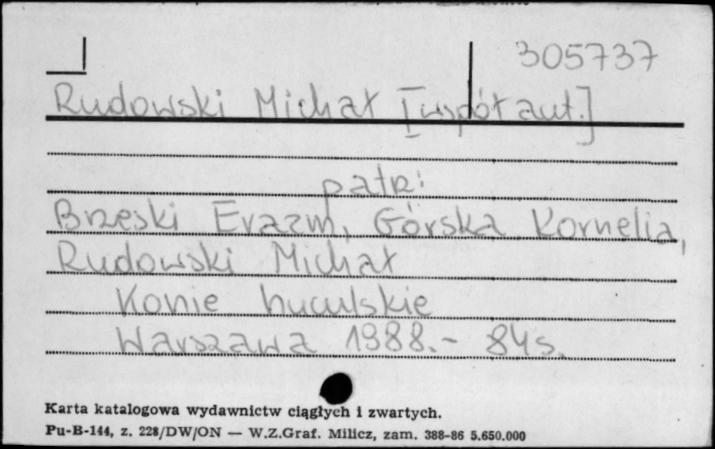 305737
Rudowski Michał [współaut.]
patr:
Brzeski Erazm, Górska Kornelia,
Rudowski Michał
Konie huculskie
Warszawa 1988.- 84s.
Karta katalogowa wydawnictw ciągłych i zwartych.
Pu-B-144, z. 228/DW/ON — W.Z.Graf. Milicz, zam. 388-86 5.650.000